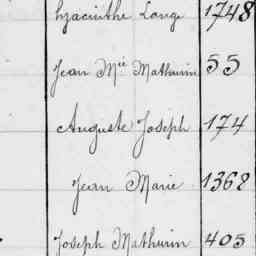 Hyacinthe Lange 1748
Jean Mie Mathurin 55
Auguste Joseph 174
Jean Marie 1368
Joseph Mathurin 405